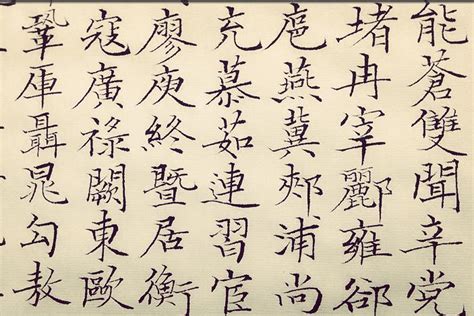 能蒼雙聞莘党
堵冉宰酈雍郤
扈燕冀郟浦尚
充慕茹連習宦
廖庾終暨居衡
寇廣祿闕東歐
鞏厙聶晁勾敖